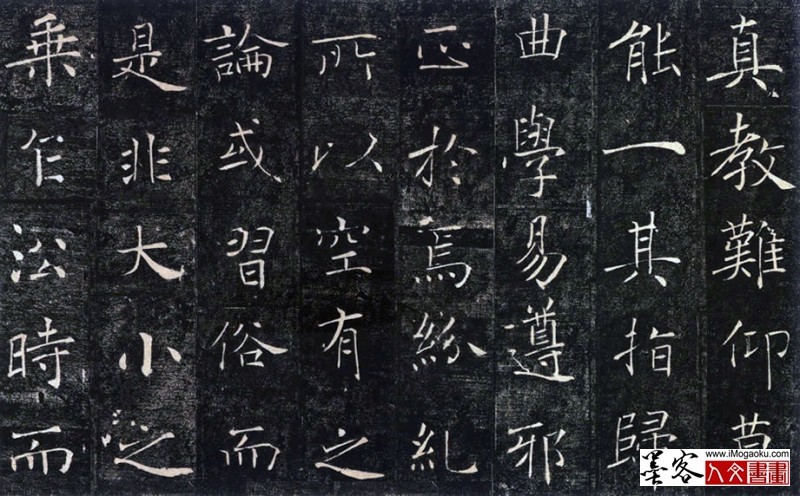 真教難仰莫
能一其指歸
曲學易遵邪
正於焉紛糺
所以空有之
論或習俗而
是非大小之
乘乍㳂時而
墨客 www.iMogaoku.com
人文書畫